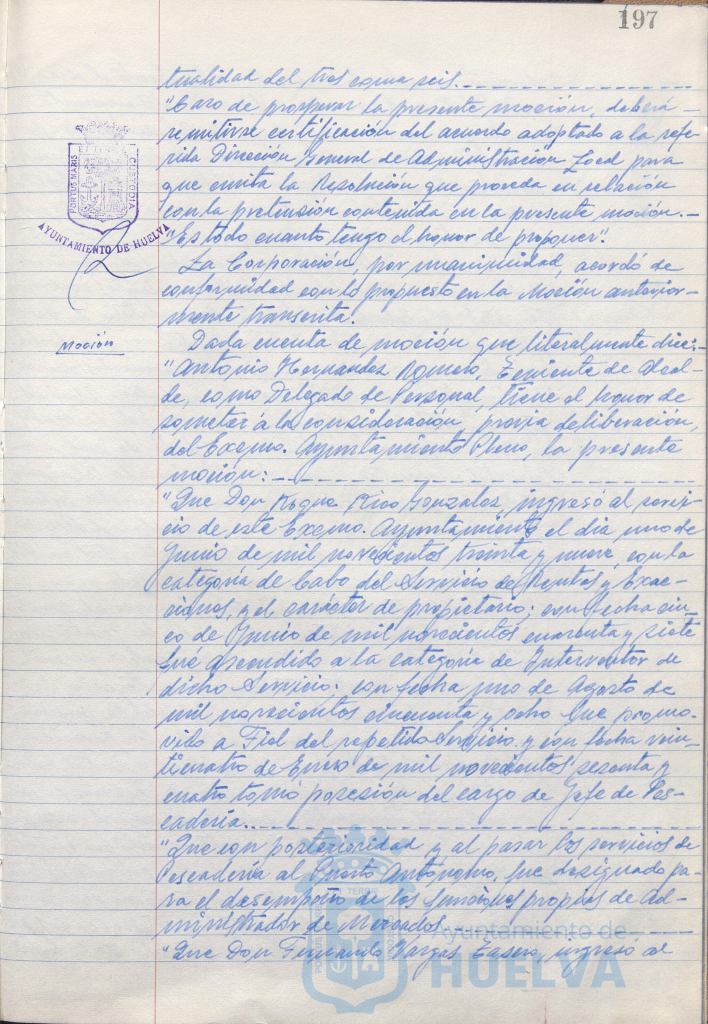 197
tualidad del tres coma seis.
"Caso de prosperar la presente moción, deberá
remitirse certificación del acuerdo adoptado a la refe-
rida Dirección General de Administración Local para
que emita la Resolución que proceda en relación
con la pretensión contenida en la presente moción.-
"Es todo cuanto tengo el honor de proponer".
PORTUS MARIS
CUSTODIA
AYUNTAMIENTO DE HUELVA
La Corporación, por unanimidad, acordó de
conformidad con lo propuesto en la Moción anterior-
mente transcrita.
Moción
Dada cuenta de moción que literalmente dice:-
"Antonio Hernandez Romero, Teniente de Alcal-
de, como Delegado de Personal, tiene el honor de
someter á la consideración, previa deliberación,
del Excmo. Ayuntamiento Pleno, la presente
moción:
"Que Don Roque Rico Gonzalez, ingresó al servi-
cio de este Excmo. Ayuntamiento el dia uno de
Junio de mil novecientos treinta y nueve, con la
categoría de Cabo del Servicio de Rentas y Exac-
ciones, y el carácter de propietario; con fecha cin-
co de Junio de mil novecientos cuarenta y siete
fué ascendido a la categoría de Interventor de
dicho Servicio; con fecha uno de Agosto de
mil novecientos cincuenta y ocho fue promo-
vido a Fiel del repetido Servicio y con fecha vein-
ticuatro de Enero de mil novecientos sesenta y
cuatro tomó posesión del cargo de Jefe de Pes-
cadería.
"Que con posterioridad y al pasar los servicios de
Pescadería al Puerto Autónomo, fue designado pa-
ra el desempeño de las funciones propias de Ad-
ministrador de Mercados.
"Que Don Fernando Vargas ingresó al
Ayuntamiento de
HUELVA